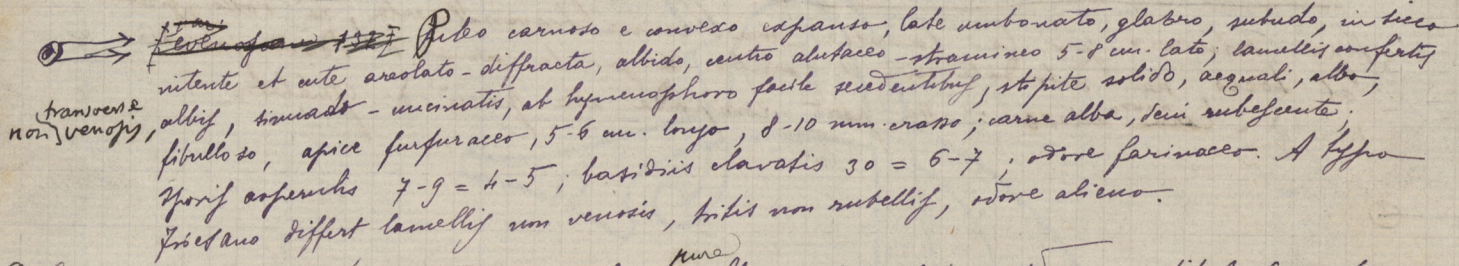 Pileo carnoso e convexo expanso, late umbonato, glabro, subudo, in sicco
nitente et cute areolato-diffracta, albido, centro alutaceo-stramineo 5-8 cm. lato; lamellis confertis
transverse
non venosis, albis, sinuato-uncinatis, ab hymenophoro facile secedentibus, stipite solido, aequali, albo,
fibrilloso, apice furfuraceo, 5-6 cm. longo, 8-10 mm. crasso; carne alba, dein rubescente;
sporis asperulis 7-9 = 4-5; basidiis clavatis 30 = 6-7; odore farinaceo. A typo
Friesano differt lamellis non venosis, tritis non rubellis, odore alieno.
pure